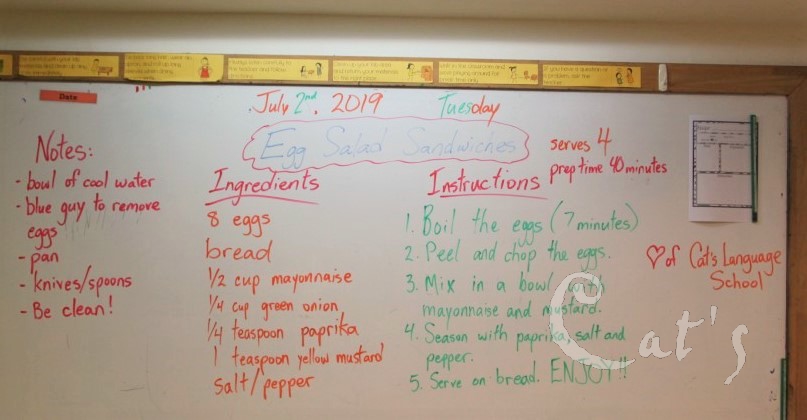 Date
July 2nd, 2019 Tuesday
Egg Salad Sandwiches
serves 4
prep time 40 minutes
Notes:
- bowl of cool water
- blue guy to remove
eggs
- pan
- knives/spoons
- Be clean!
Ingredients
8 eggs
bread
1/2 cup mayonnaise
1/4 cup green onion
1/4 teaspoon paprika
1 teaspoon yellow mustard
salt/pepper
Instructions
1. Boil the eggs (7 minutes)
2. Peel and chop the eggs.
3. Mix in a bowl with
mayonnaise and mustard.
4. Season with paprika, salt and
pepper.
5. Serve on bread. ENJOY!!
♡ of Cat's Language
School
Cat's